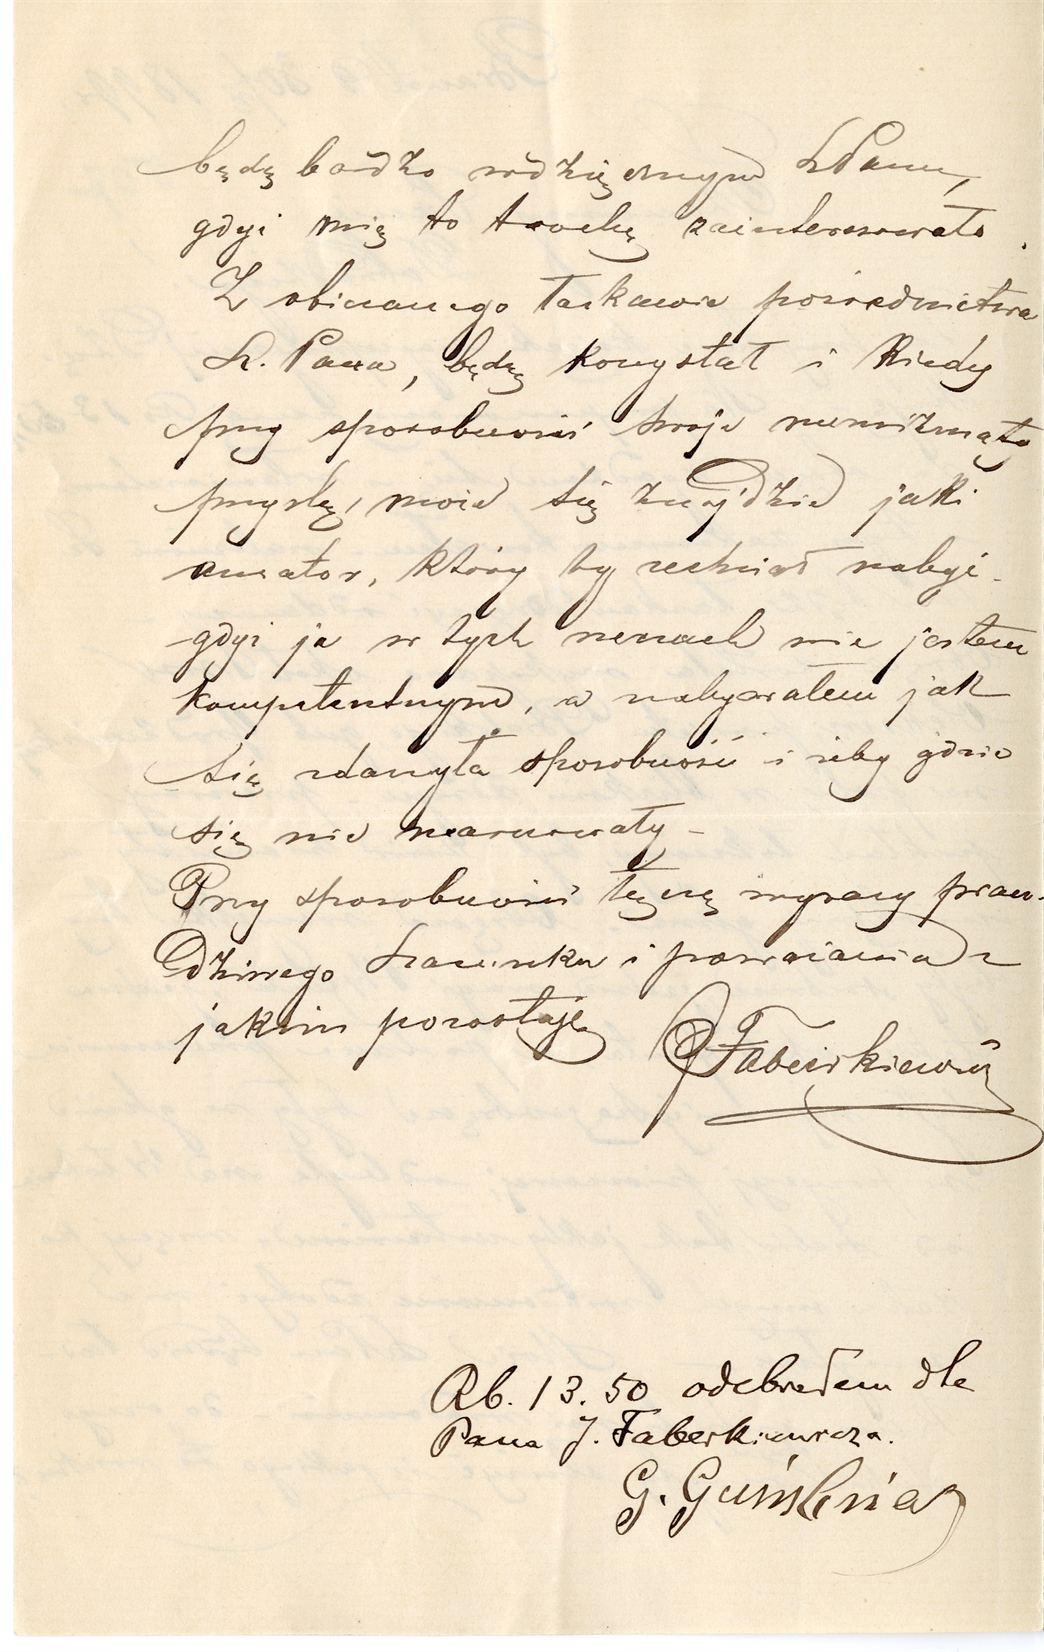 będę bardzo wdzięcznym SzPanu,
gdyż mię to trochę zainteresowało.
Z obiecanego łaskawie pośrednictwa
Sz. Pana, będę korzystał i kiedy
przy sposobności swoje numizmaty
przyślę, może się znajdzie jaki
amator, który by zechciał nabyć -
gdyż ja w tych rzeczach nie jestem
kompetentnym, a nabywałem jak
się zdarzyła sposobność i żeby gdzie
się nie marnowały -
Przy sposobności łączę wyrazy praw-
dziwego szacunku i poważania z
jakim pozostaję
JFaberkiewicz
Rb. 13.50 odebrałem dla
Pana J. Faberkiewicza.
G.